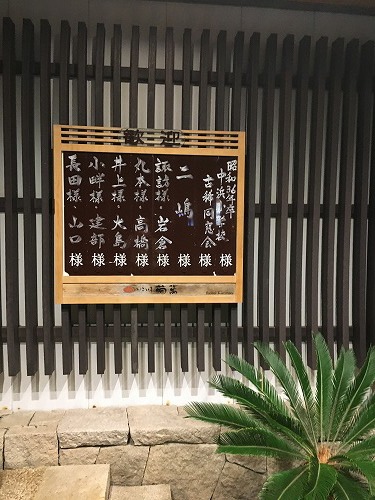 歓迎
昭和36年度
中浜小学校
古稀同窓会様
二嶋様
諏訪様 岩倉様
丸本様 高橋様
井上様 大島様
小畔様 建部様
長田様 山口様